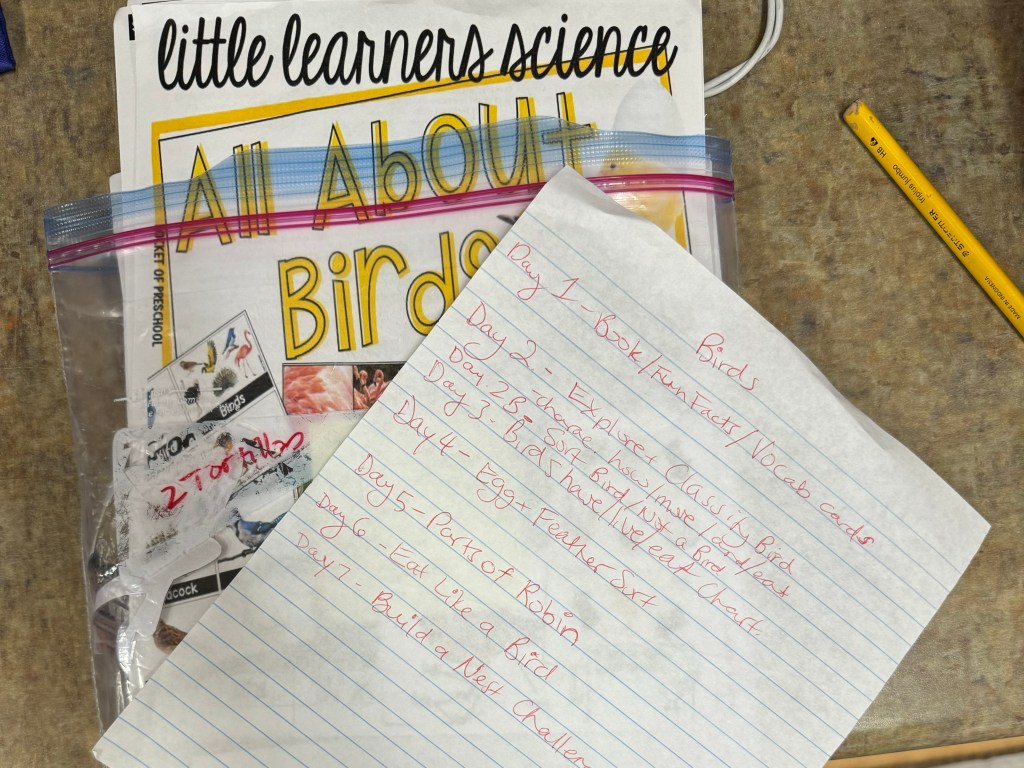 little learners science
All About
Birds
KET OF PRESCHOOL
Birds
2 Tortillas
acock
Birds
Day 1 - Book/Fun Facts/Vocab cards
Day 2 - Explore + Classify Bird
- charac. how move/and/eat
Day 2B - Sort Bird/Not a Bird
Day 3 - Birds have/live/eat Chart.
Day 4 - Egg + Feather Sort
Day 5 - Parts of Robin
Day 6 - Eat Like a Bird
Day 7 - Build a Nest Challen
HB
triplus jumbo
STAEDTLER
MADE IN INDONESIA